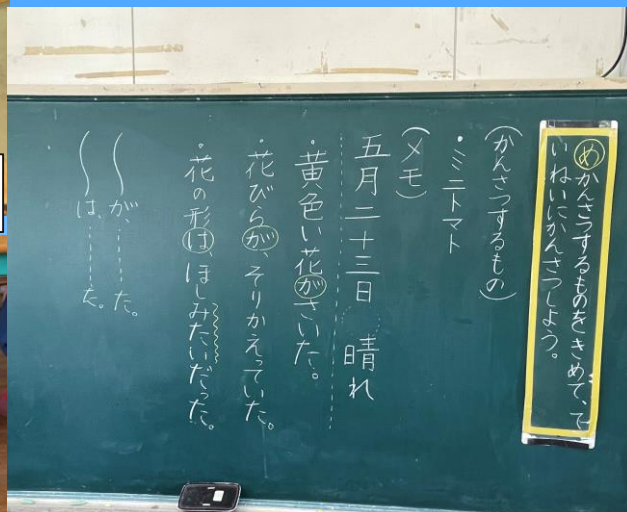 めかんさつするものをきめて、て
いねいにかんさつしよう。
(かんさつするもの)
・ミニトマト
(メモ)
五月二十三日 晴れ
・黄色い花がさいた。
・花びらが、そりかえっていた。
・花の形は、ほしみたいだった。
〜が、……た。
〜は、……た。